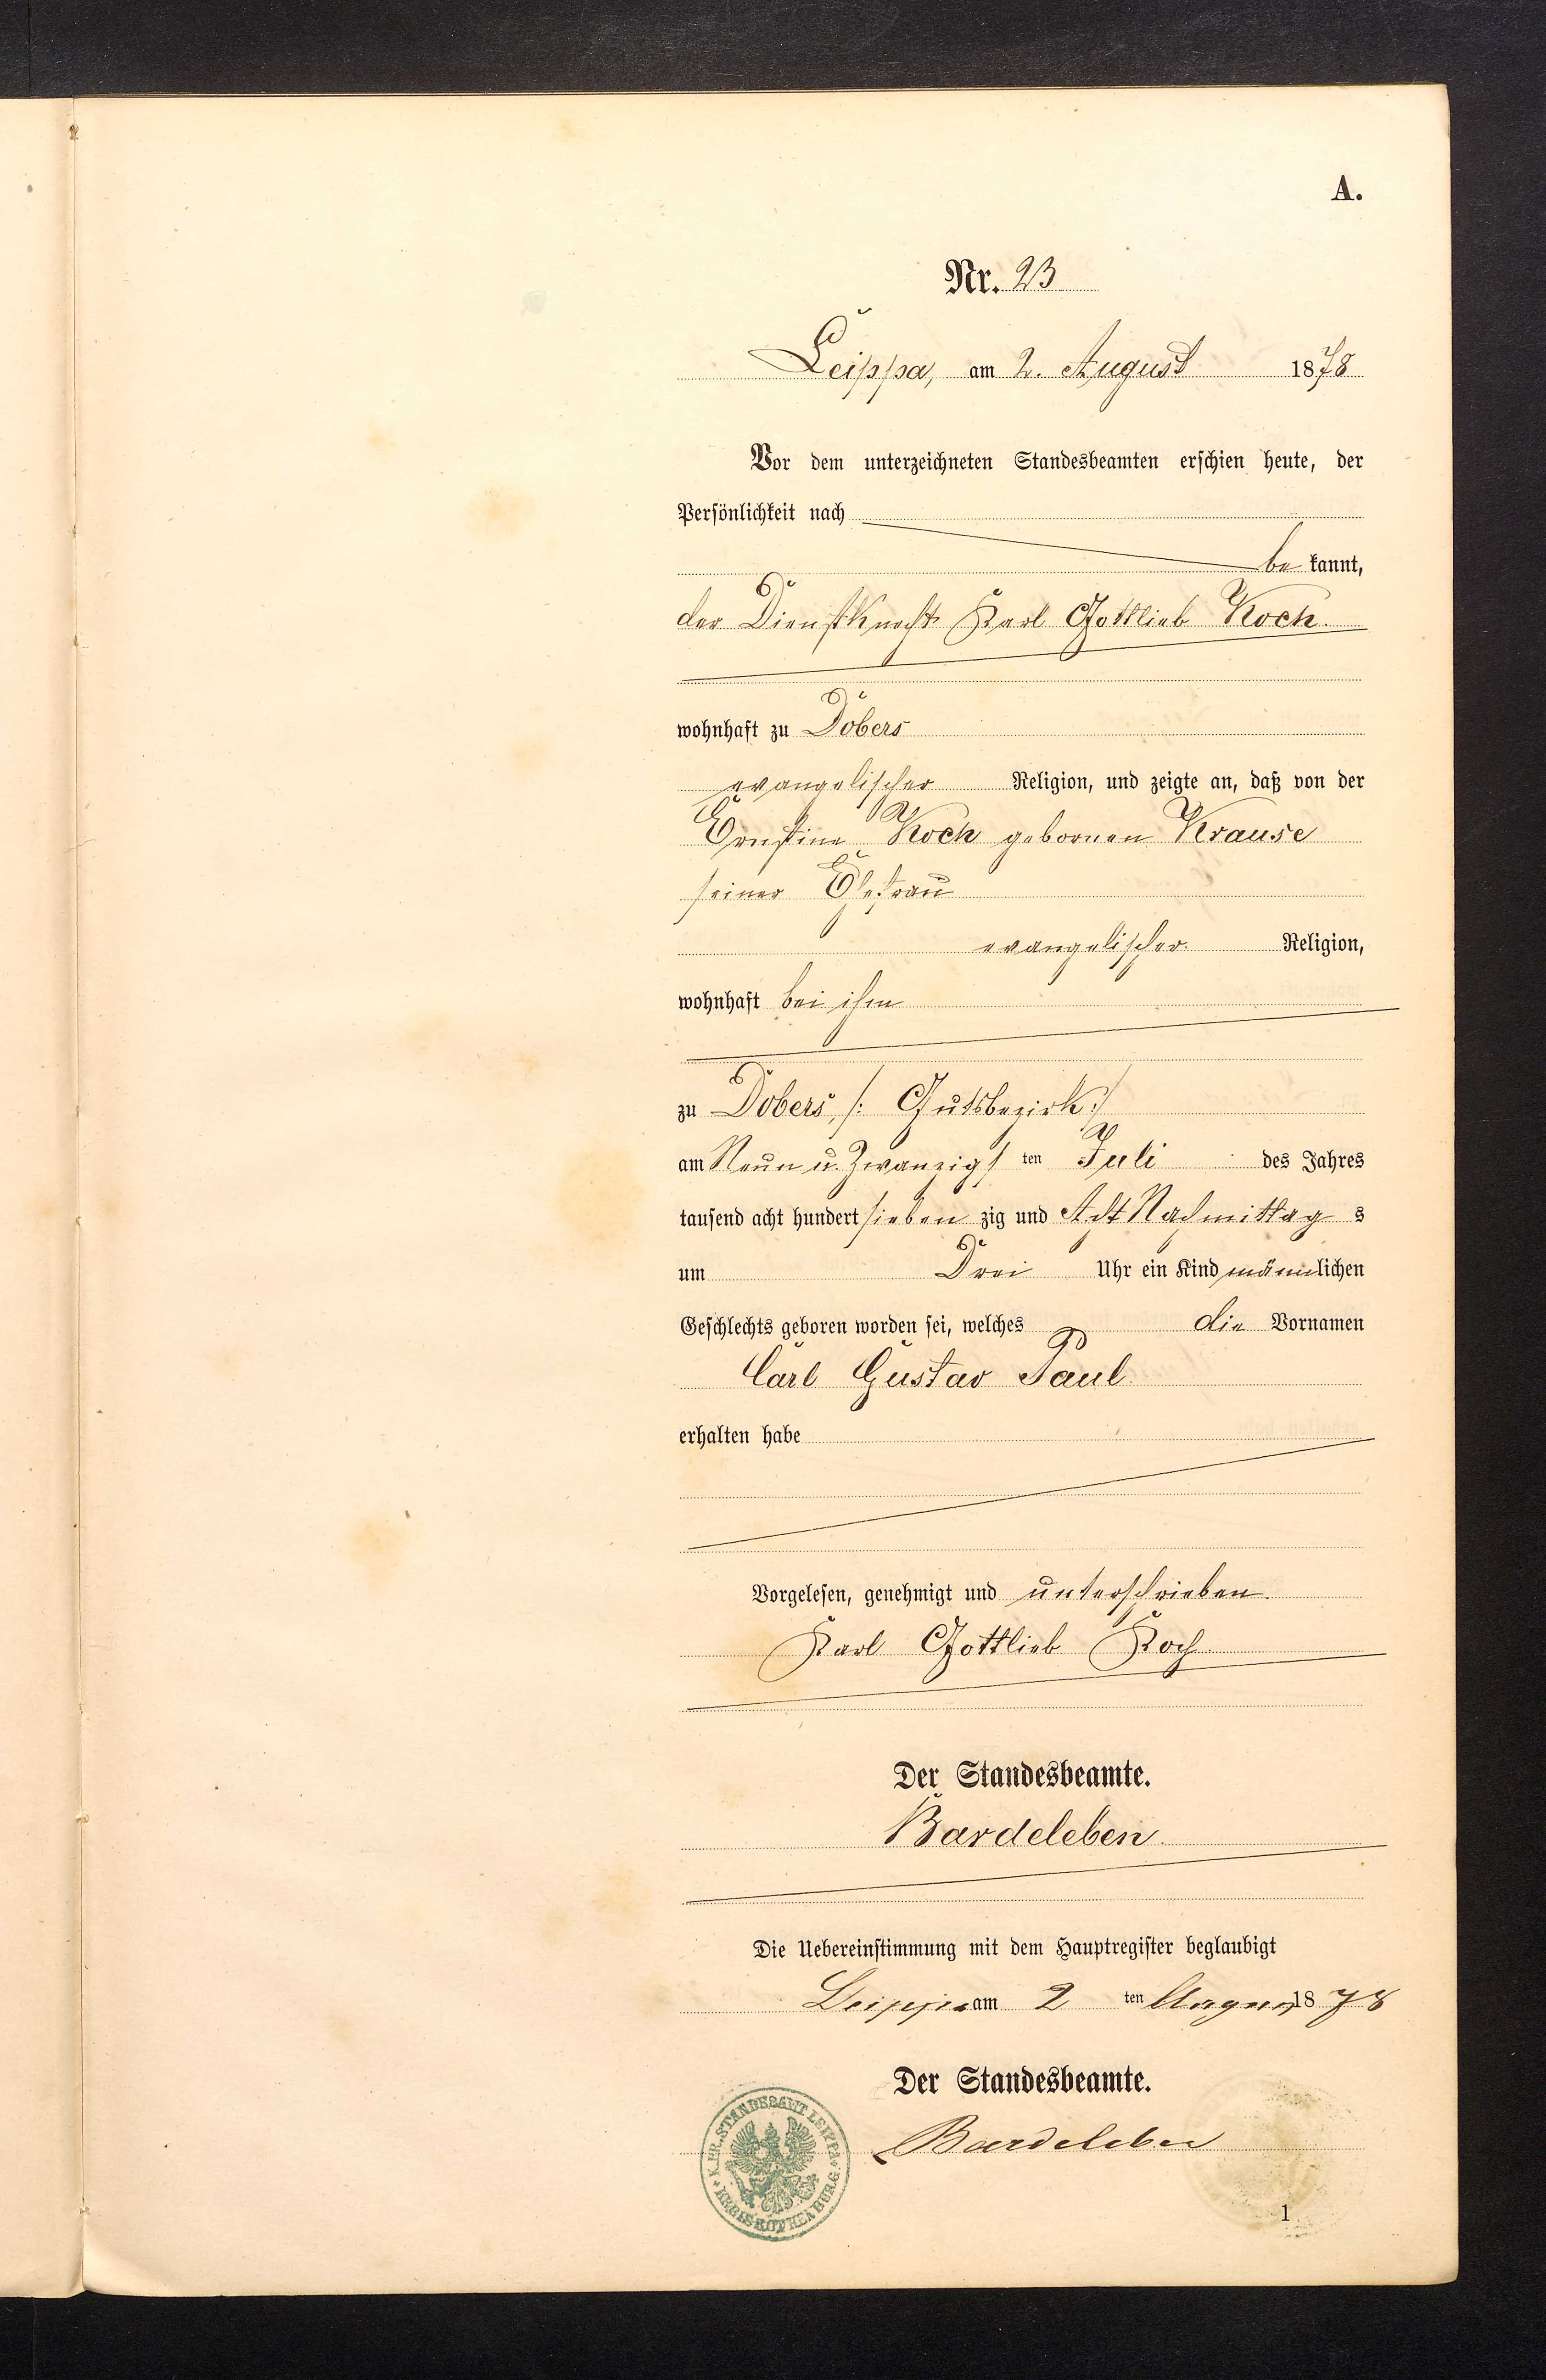 A.
Nr. 23
Leippa, am 2. August 1878
Vor dem unterzeichneten Standesbeamten erschien heute, der
Persönlichkeit nach
be kannt,
der Dienstknecht Karl Gottlieb Koch
wohnhaft zu Dobers
evangelischer Religion, und zeigte an, daß von der
Ernstine Koch gebornen Krause
seiner Ehefrau
evangelischer Religion,
wohnhaft bei ihm
zu Dobers, /: Gutsbezirk :/
am Neun u. Zwanzigs ten Juli des Jahres
tausend acht hundert sieben zig und Acht Nachmittag s
um Drei Uhr ein Kind männlichen
Geschlechts geboren worden sei, welches die Vornamen
Carl Gustav Paul
erhalten habe
Vorgelesen, genehmigt und unterschrieben.
Karl Gottlieb Koch
Der Standesbeamte.
Bardeleben
Die Uebereinstimmung mit dem Hauptregister beglaubigt
Leippa am 2 ten August 1878
Der Standesbeamte.
Bardeleben
K. PR. STANDESAMT LEIPPA
KREIS ROTHENBURG.
1